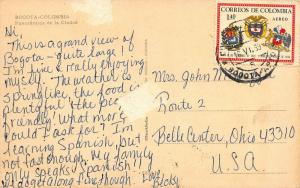 BOGOTA-COLOMBIA
Panorámica de la Ciudad
Hi,
This is a grand view of
Bogota - quite large! I
I'm sure really enjoying
myself. The weather is
springlike, the food is
plentiful & the people
friendly! What more
could I ask for? I'm
learning Spanish, but
not fast enough. My family
only speaks Spanish!!
We do get along fine though.
Love,
Becky
CORREOS DE COLOMBIA
1.40
AEREO
BOGOTA
Mrs. John M
Route 2
Belle Center, Ohio 43310
U.S.A.